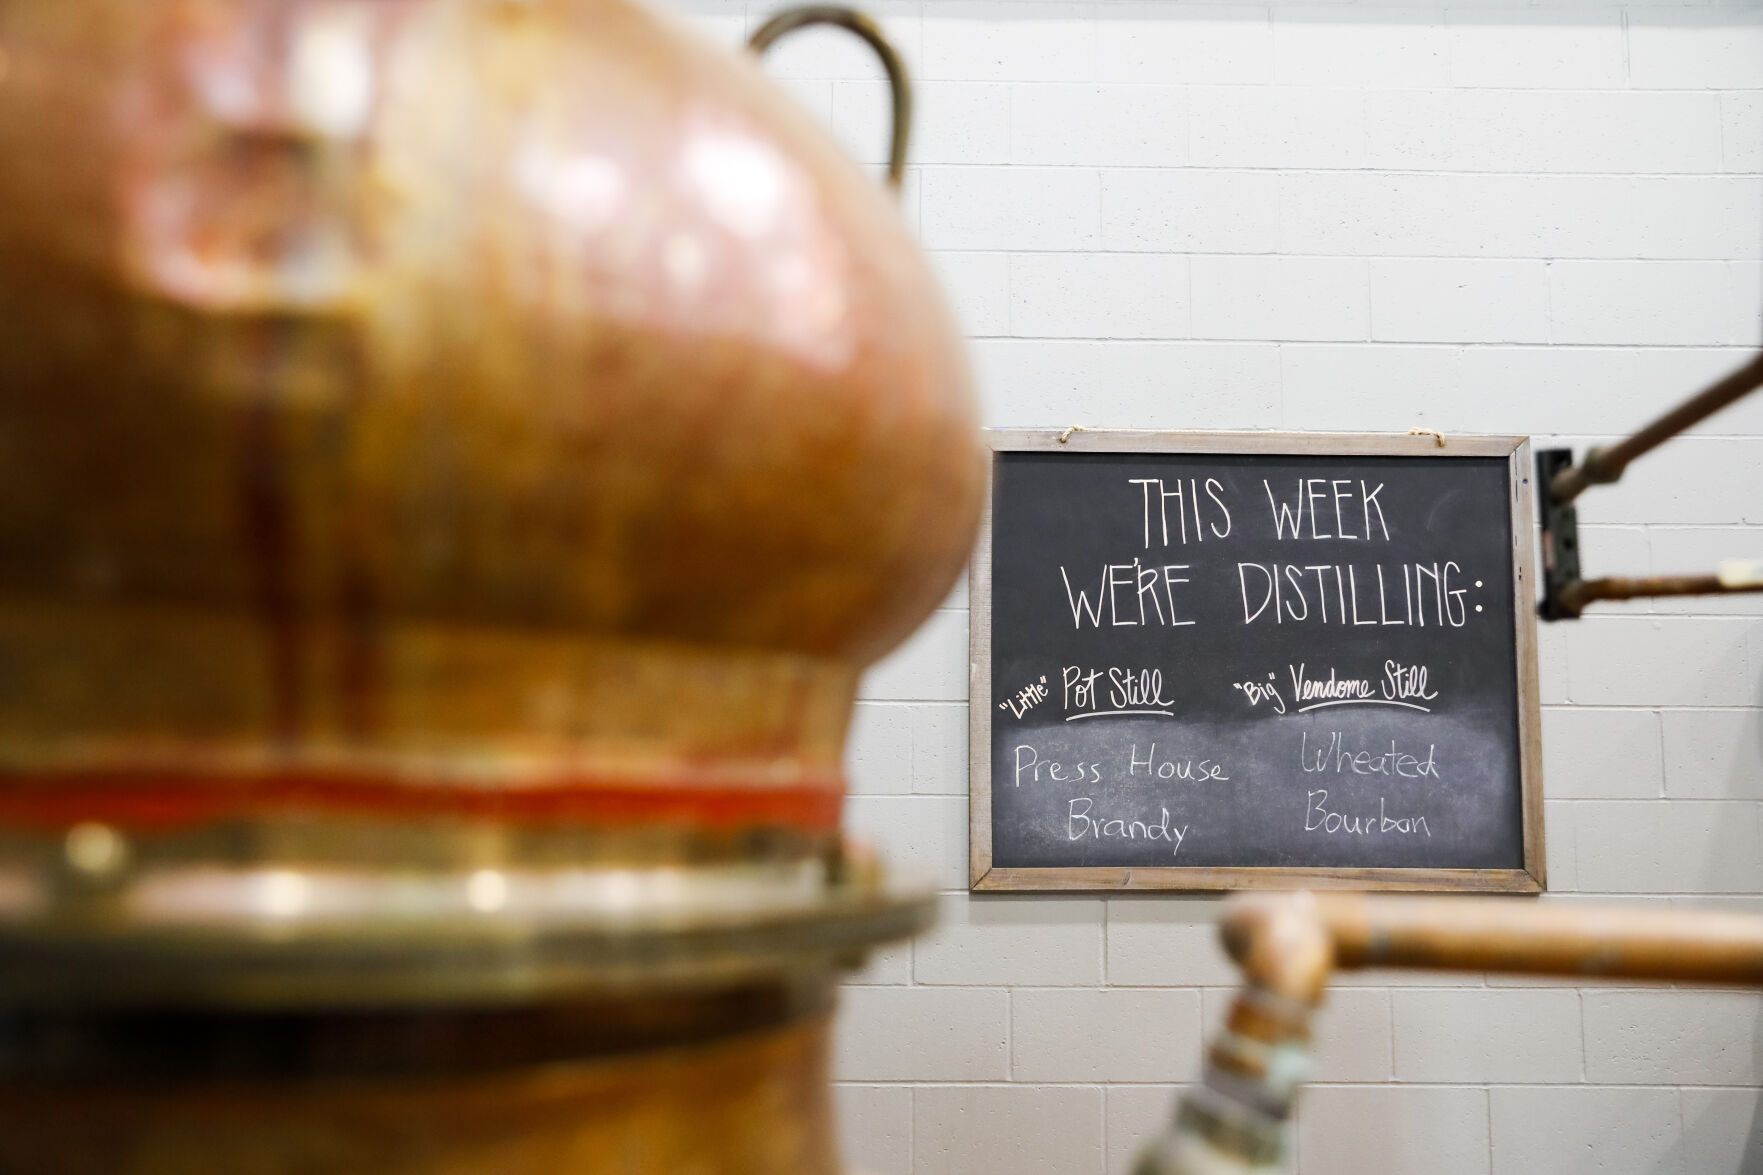 THIS WEEK
WE'RE DISTILLING:
"Little" Pot Still
Press House
Brandy
"Big" Vendome Still
Wheated
Bourbon